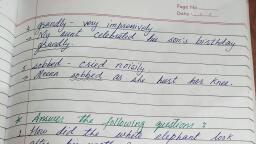 Page No.
Date
* grandly - very impressively
→ My aunt celebrated her son's birthday
grandly.
* sobbed - cried noisily
→ Meena sobbed as she hurt her knee.
* Answer the following questions :
1 How did the white elephant look
after his mother